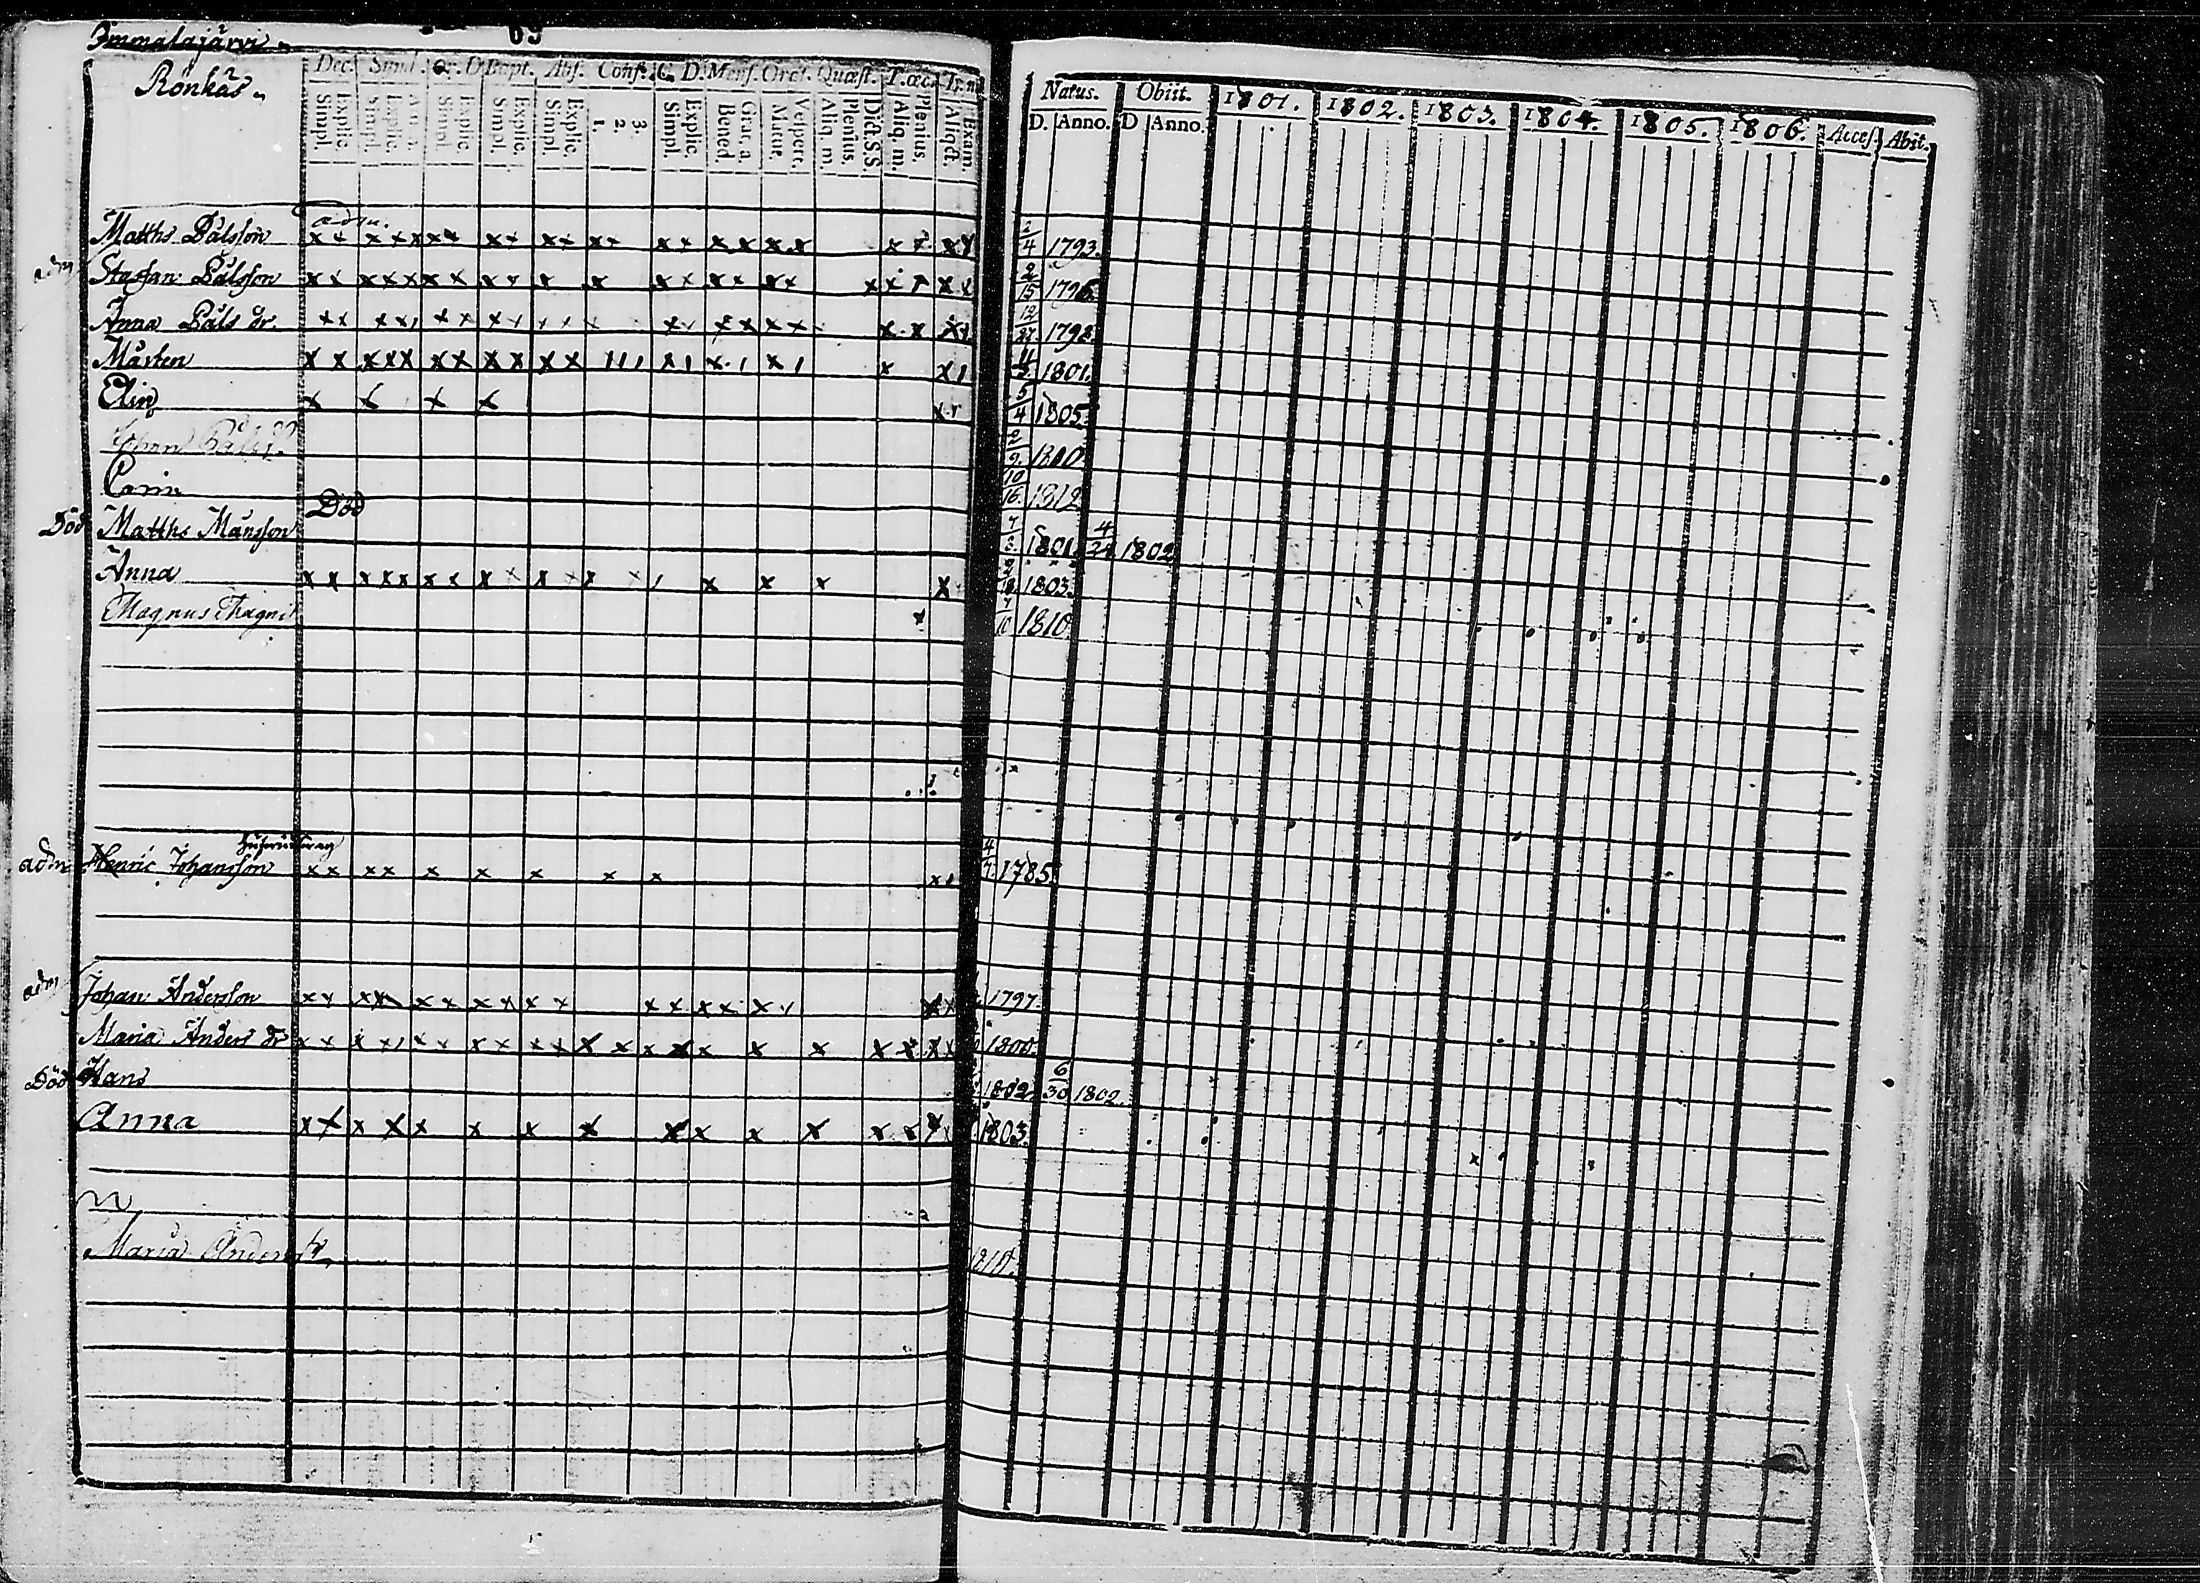 Immalajärvi 69
Rönkäs
Dec. Symb. Or. D. Bapt. Abs. Conf. C. D. Mens. Orat. Quæst. T. œc. Tr. m
Simpl. Explic. Simpl. Explic. A. a. Simpl. Explic. Simpl. Explic. Simpl. Explic. 1. 2. 3. Simpl. Explic. Bened. Grat. a. Matut. Vespert. Aliq. m. Plenius. Dict. S. S. Aliq. m. Plenius. Aliqćt. Exam.
Natus. Obiit. 1801. 1802. 1803. 1804. 1805. 1806. Acces. Abit.
D. Anno. D Anno.
adm.
Matths Pålsson 2/4 1793.
adm Staffan Pålsson 2/15 1796.
Anna Påls dr. 12/27 1798.
Mårten 1801.
Elin 5/4 1805.
Johan Påls 2/9. 1810
Carin 10/16. 1812
Död
Död Matths Månsson 7/3. 1801. 4/24 1802
Anna 1803.
Magnus Magni 7/10 1810
adm Henric Johansson 4/7. 1785
adm Johan Andersson 1797.
Maria Anders dr 1800.
Död Hans 1802 6/30 1802.
Anna 1803.
Maria Anders